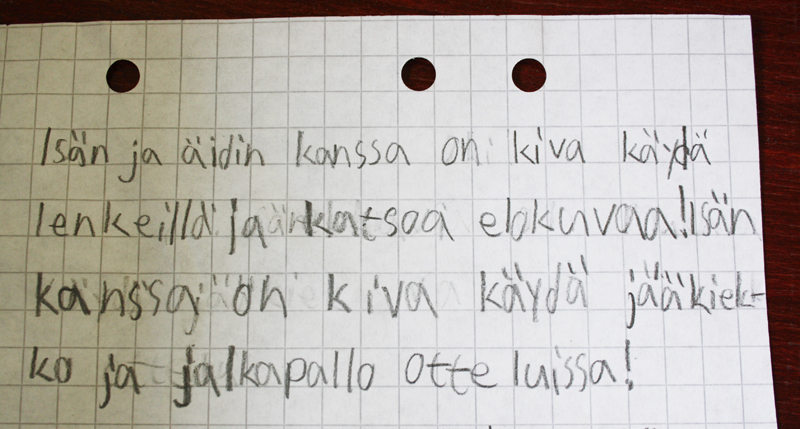 Isän ja äidin kanssa on kiva käydä
lenkeillä ja katsoa elokuvaa! Isän
kanssa on kiva käydä jääkiek-
ko ja jalkapallo otteluissa!